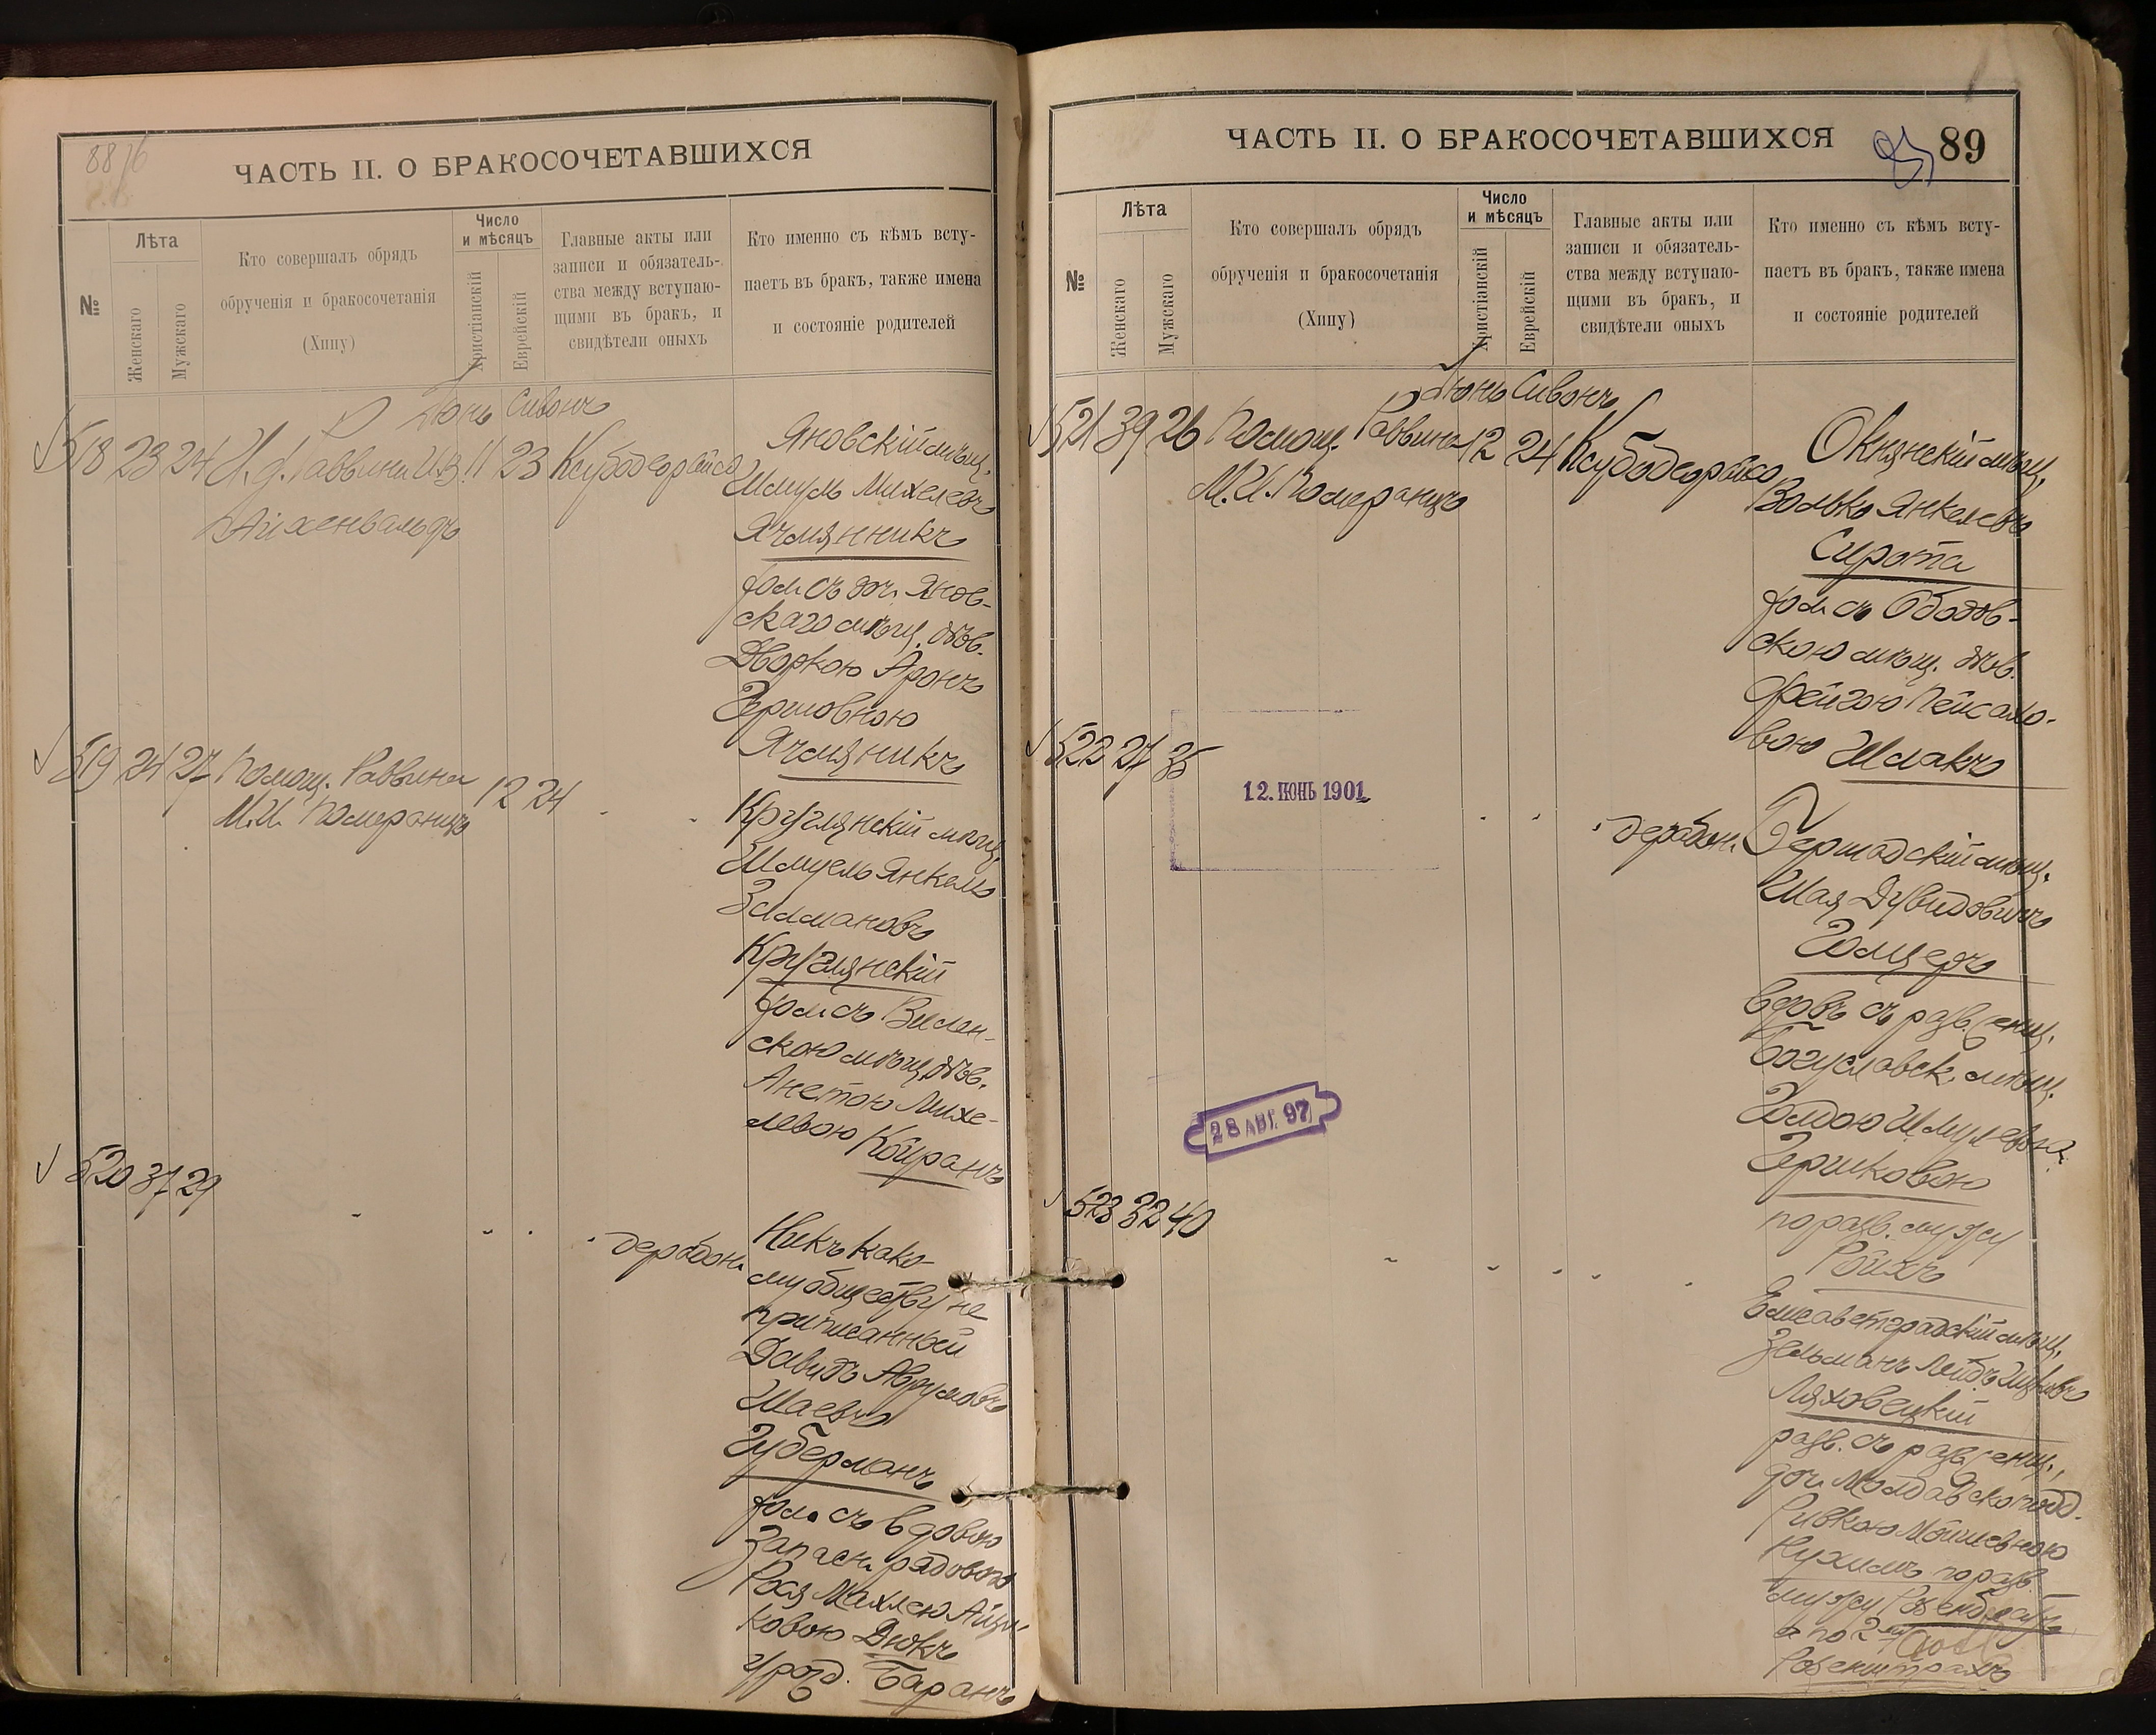 8876
ЧАСТЬ II. О БРАКОСОЧЕТАВШИХСЯ
№
Лѣта
Женскаго
Мужскаго
Кто совершалъ обрядъ
обрученія и бракосочетанія
(Хипу)
Число
и мѣсяцъ
Христіанскій
Еврейскій
Главные акты или
записи и обязатель-
ства между вступаю-
щими въ бракъ, и
свидѣтели оныхъ
Кто именно съ кѣмъ всту-
паетъ въ бракъ, также имена
и состояніе родителей
Іюнь Сивонъ
518 23 24 И.д. Раввина И.З. 11 23 Ксубодеорайсо
Айхенвальдъ
Яновскій мѣщ.
Шмуль Михелевъ
Ячмянникъ
хол. съ доч. Янов-
скаго мѣщ. дѣв.
Дворкою Аронъ
Гершовною
Ячмяникъ
519 24 27 Помощ. Раввина 12 24
М.И. Померанцъ
Круглянскій мѣщ.
Шмуель Янкель
Залмановъ
Круглянскій
хол. съ Вилен-
скою мѣщ. дѣв.
Анетою Михе-
левою Койранъ
520 37 29
дерабон.
Никъ како-
му обществу не
приписанный
Давидъ Аврумовъ
Шаевъ
Губерманъ
хол. съ вдовою
запасн. рядового
Рося Махлею Айзи
ковою Дюкъ
урожд. Баранъ
ЧАСТЬ II. О БРАКОСОЧЕТАВШИХСЯ
89
№
Лѣта
Женскаго
Мужскаго
Кто совершалъ обрядъ
обрученія и бракосочетанія
(Хипу)
Число
и мѣсяцъ
Христіанскій
Еврейскій
Главные акты или
записи и обязатель-
ства между вступаю-
щими въ бракъ, и
свидѣтели оныхъ
Кто именно съ кѣмъ всту-
паетъ въ бракъ, также имена
и состояніе родителей
Іюнь Сивонъ
521 39 26 Помощ. Раввина 12 24 Ксубодеорайсо
М.И. Померанцъ
Окнянскій мѣщ.
Волько Янкелевъ
Сирота
хол. съ Ободов-
скою мѣщ. дѣв.
Фейгою Пейсахо-
вою Шмакъ
522 27 35
12. ИЮНЬ 1901
дерабон.
Бершадскій мѣщ.
Шая Дувидовичъ
Голцеръ
вдовъ съ разв. женщ.
Богуславск. мѣщ.
Голдою Шмулевна
Гершковою
по разв. мужу
Ройхъ
28 АВГ. 97
523 32 40
Елисаветградскій мѣщ.
Зельманъ Лейбъ Ицковъ
Ляховецкій
разв. съ разв. женщ.,
доч. Молдавско подд.
Ривкою Мошевною
Нухимъ по разв.
мужу Розенблатъ
а по 2му
Розенштрахъ